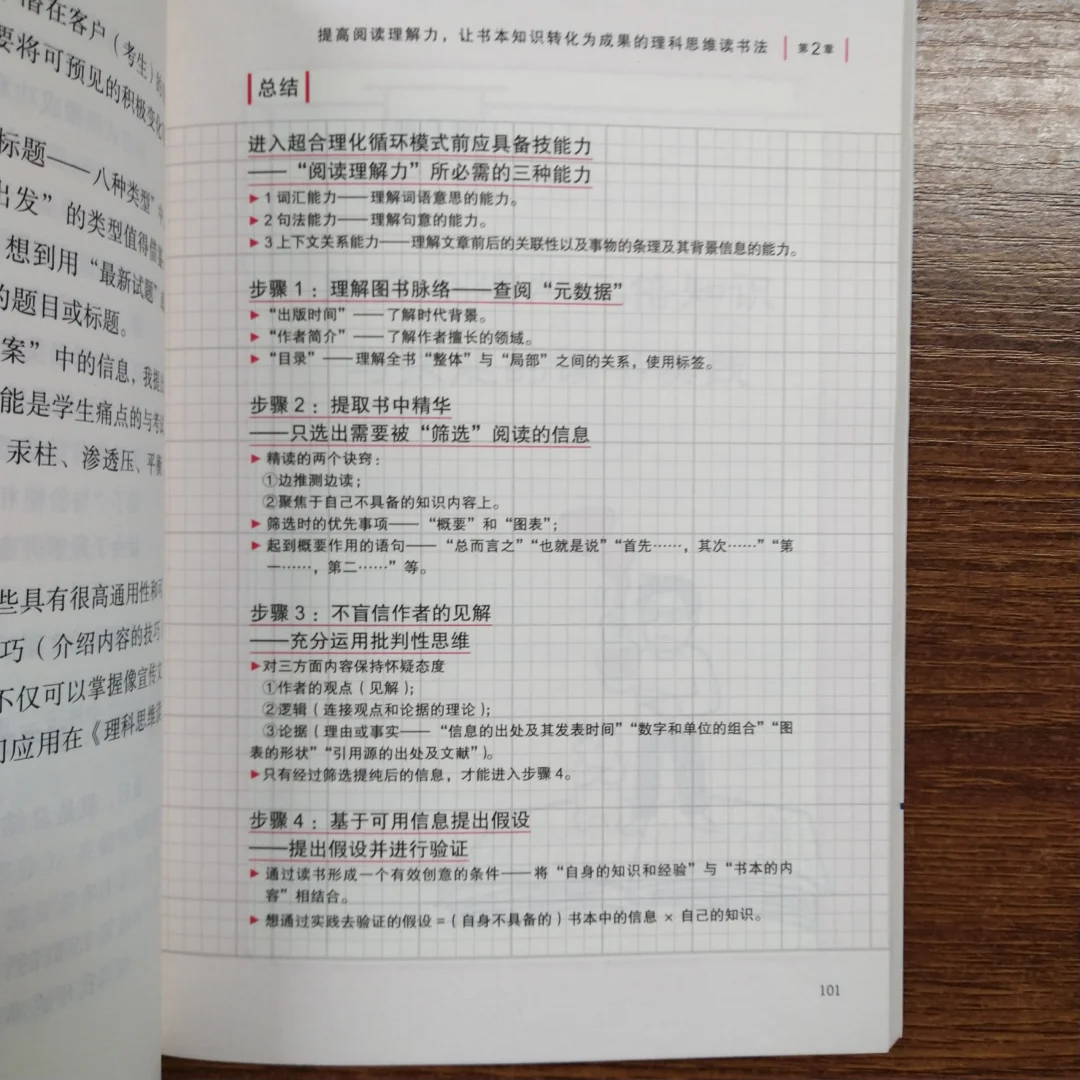 潜在客户（考生）的
要将可预见的积极变化
标题——八种类型”中，
出发”的类型值得借鉴
想到用“最新试题”
的题目或标题。
案”中的信息，我提
能是学生痛点的与考试
汞柱、渗透压、平衡
些具有很高通用性和可
巧（介绍内容的技巧
不仅可以掌握像宣传文
们应用在《理科思维读
提高阅读理解力，让书本知识转化为成果的理科思维读书法 第2章
总结
进入超合理化循环模式前应具备技能力
——“阅读理解力”所必需的三种能力
▶1 词汇能力——理解词语意思的能力。
▶2 句法能力——理解句意的能力。
▶3 上下文关系能力——理解文章前后的关联性以及事物的条理及其背景信息的能力。
步骤 1：理解图书脉络——查阅“元数据”
▶“出版时间”——了解时代背景。
▶“作者简介”——了解作者擅长的领域。
▶“目录”——理解全书“整体”与“局部”之间的关系，使用标签。
步骤 2：提取书中精华
——只选出需要被“筛选”阅读的信息
▶精读的两个诀窍：
①边推测边读；
②聚焦于自己不具备的知识内容上。
▶筛选时的优先事项——“概要”和“图表”；
▶起到概要作用的语句——“总而言之”“也就是说”“首先……，其次……”“第
一……，第二……”等。
步骤 3：不盲信作者的见解
——充分运用批判性思维
▶对三方面内容保持怀疑态度
①作者的观点（见解）；
②逻辑（连接观点和论据的理论）；
③论据（理由或事实——“信息的出处及其发表时间”“数字和单位的组合”“图
表的形状”“引用源的出处及文献”）。
▶只有经过筛选提纯后的信息，才能进入步骤 4。
步骤 4：基于可用信息提出假设
——提出假设并进行验证
▶通过读书形成一个有效创意的条件——将“自身的知识和经验”与“书本的内
容”相结合。
▶想通过实践去验证的假设 =（自身不具备的）书本中的信息 × 自己的知识。
101